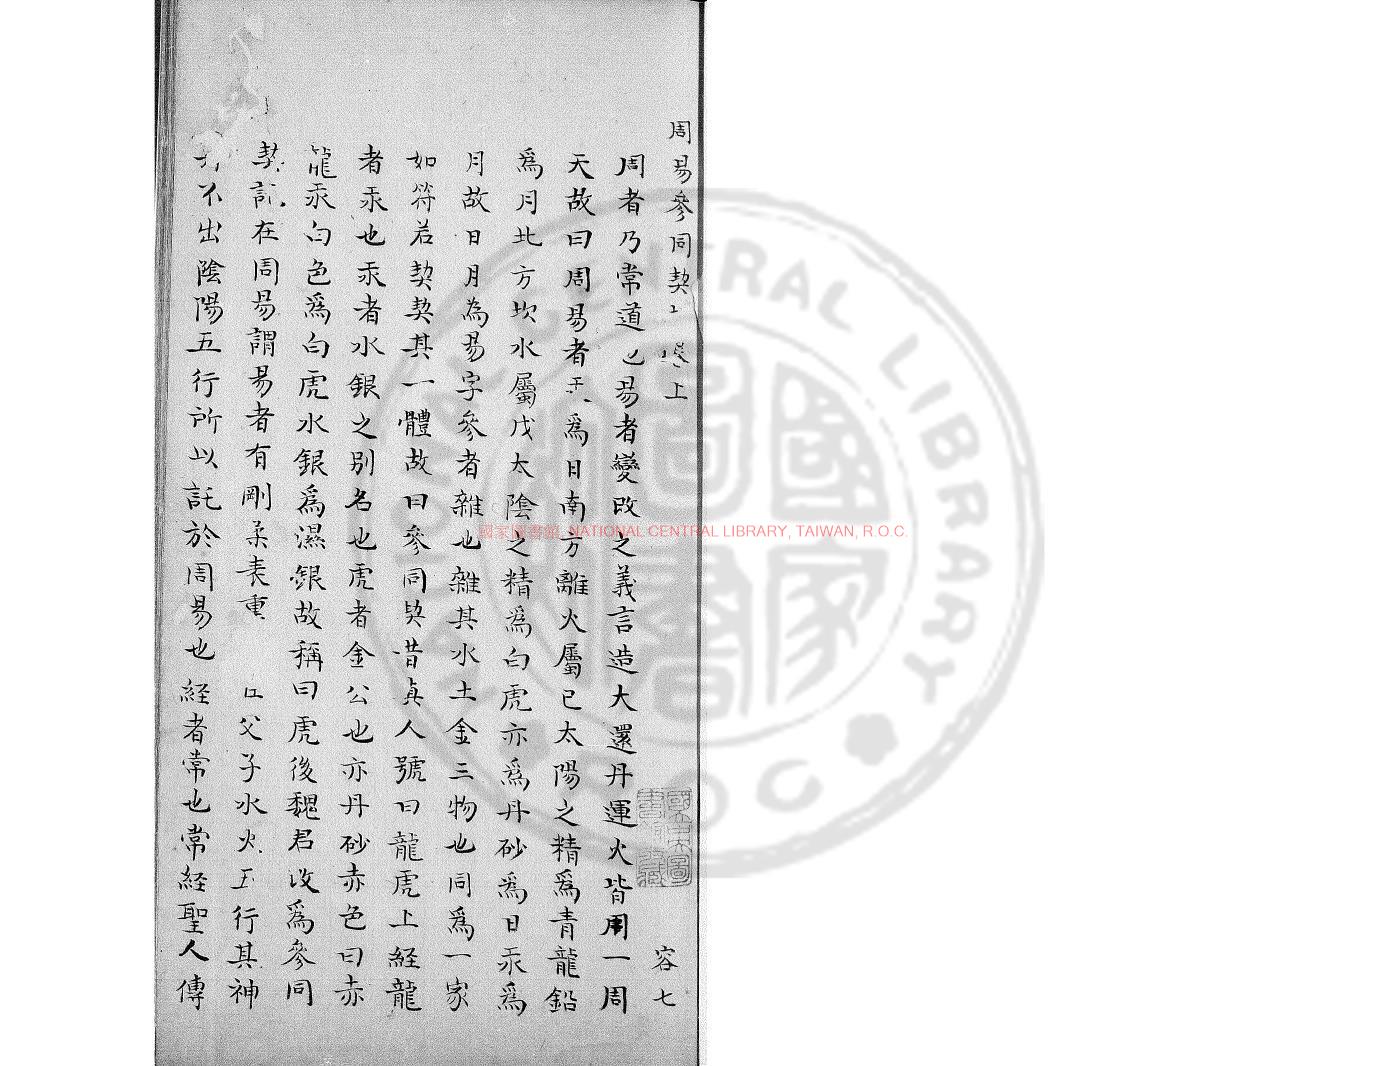 周易參同契卷上 容七
周者乃常道也易者變改之義言造大還丹運火皆用一周
天故曰周易者 爲日南方離火屬已太陽之精爲青龍鉛
爲月北方坎水屬戊太陰之精爲白虎亦爲丹砂爲日汞爲
月故日月為易字參者雜也雜其水土金三物也同爲一家
如符若契契其一體故曰參同契昔真人號曰龍虎上経龍
者汞也汞者水銀之別名也虎者金公也亦丹砂赤色曰赤
龍汞白色爲白虎水銀爲濕銀故稱曰虎後魏君改爲參同
契託在周易謂易者有剛柔表裏 父子水火五行其神
不出陰陽五行所以託於周易也経者常也常経聖人傳
國家圖書館, NATIONAL CENTRAL LIBRARY, TAIWAN, R.O.C.